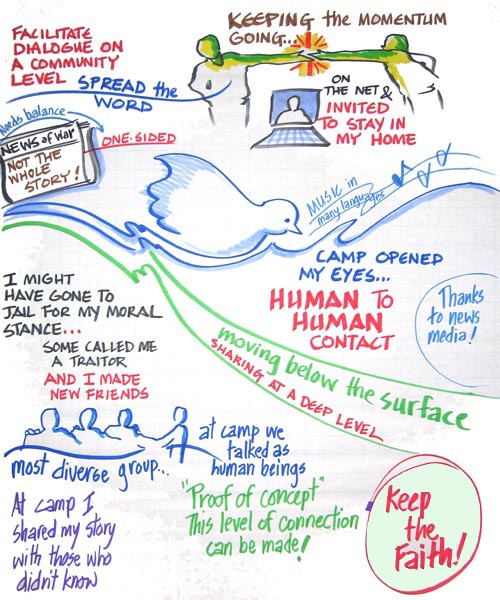 FACILITATE
DIALOGUE ON
A COMMUNITY
LEVEL
SPREAD the
WORD
KEEPING the MOMENTUM
GOING...
ON
THE NET &
INVITED
TO STAY IN
MY HOME
Needs balance
NEWS of WAR
NOT THE
WHOLE
STORY!
ONE-SIDED
MUSIC in
many languages
CAMP OPENED
MY EYES...
HUMAN TO
HUMAN
CONTACT
Thanks
to news
media!
I MIGHT
HAVE GONE TO
JAIL FOR MY MORAL
STANCE...
SOME CALLED ME
A TRAITOR
AND I MADE
NEW FRIENDS
moving below the surface
SHARING AT A DEEP LEVEL
most diverse group...
at camp we
talked as
human beings
At camp I
shared my story
with those who
didn't know
"Proof of concept"
This level of connection
can be made!
Keep
the
Faith!